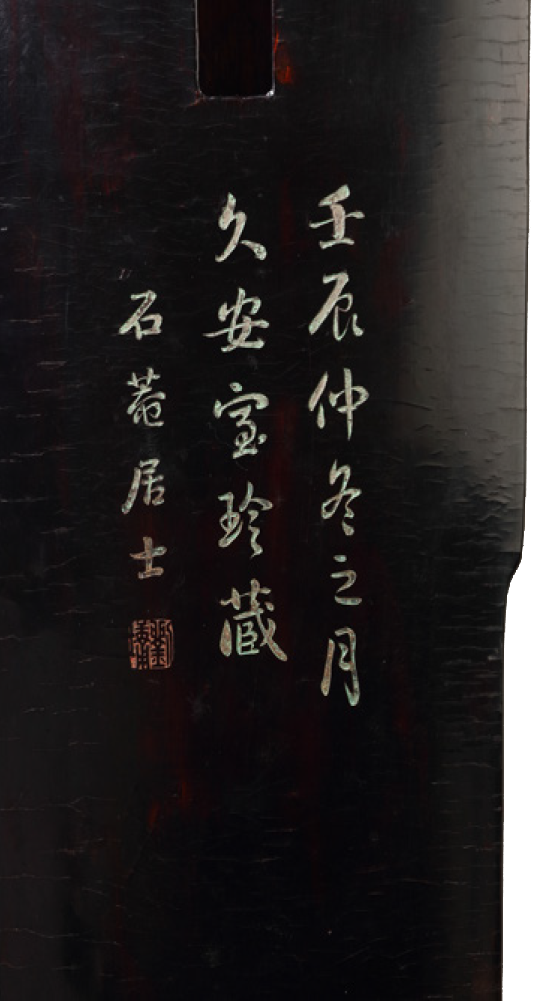 壬辰仲冬之月
久安室珍藏
石菴居士